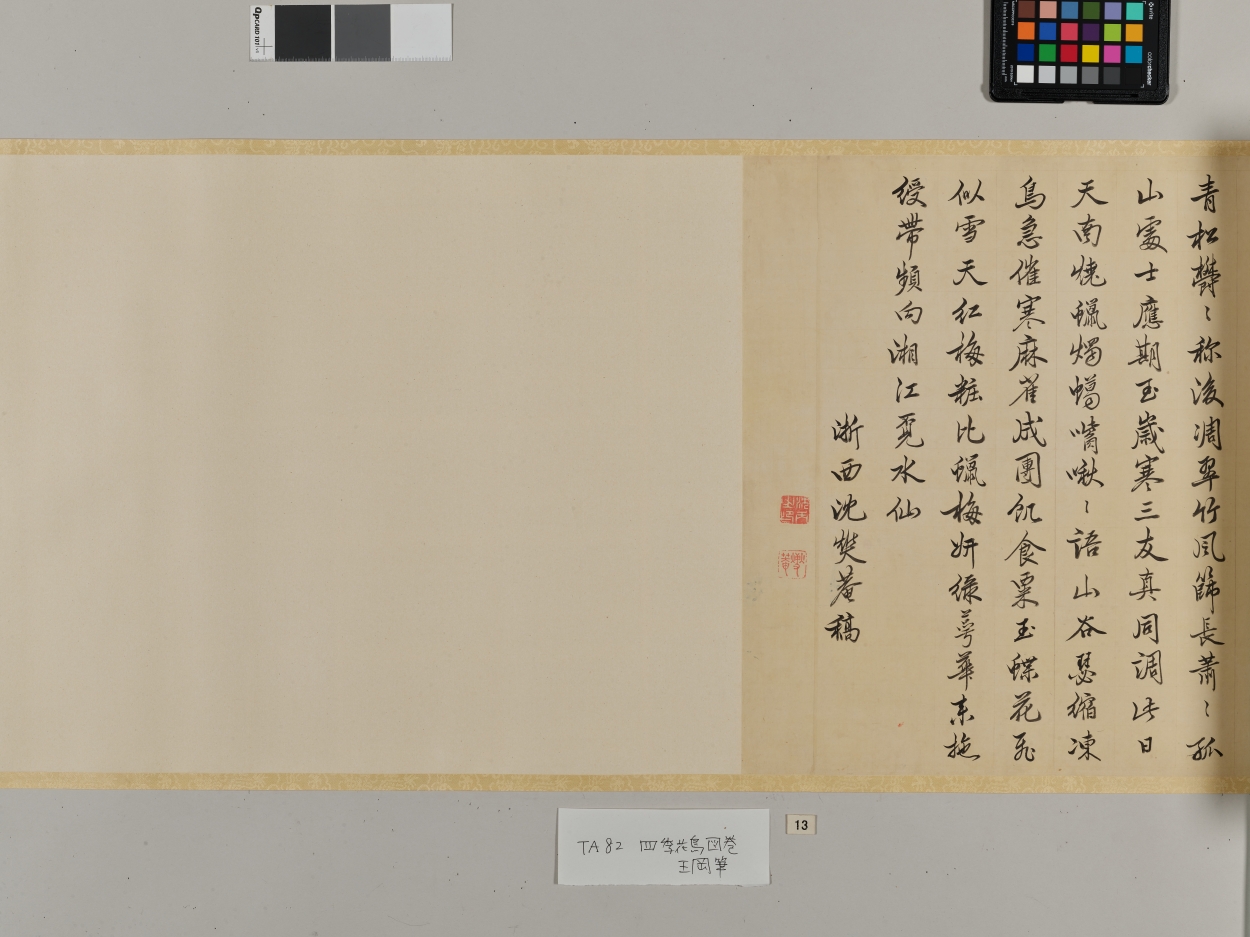 青松欝〻称後凋翠竹風篩長蕭〻孤
山處士應期至歲寒三友真同調此日
天南燒蠟燭蠟嘴啾〻語山谷瑟縮凍
鳥急催寒麻雀成團飢食粟玉蝶花飛
似雪天紅梅粧比蠟梅妍綠萼華未拖
綬帶頻向湘江覓水仙
浙西沈樊菴稿
TA82 四季花鳥図巻
王岡筆
13
QPCARD 101
colorchecker